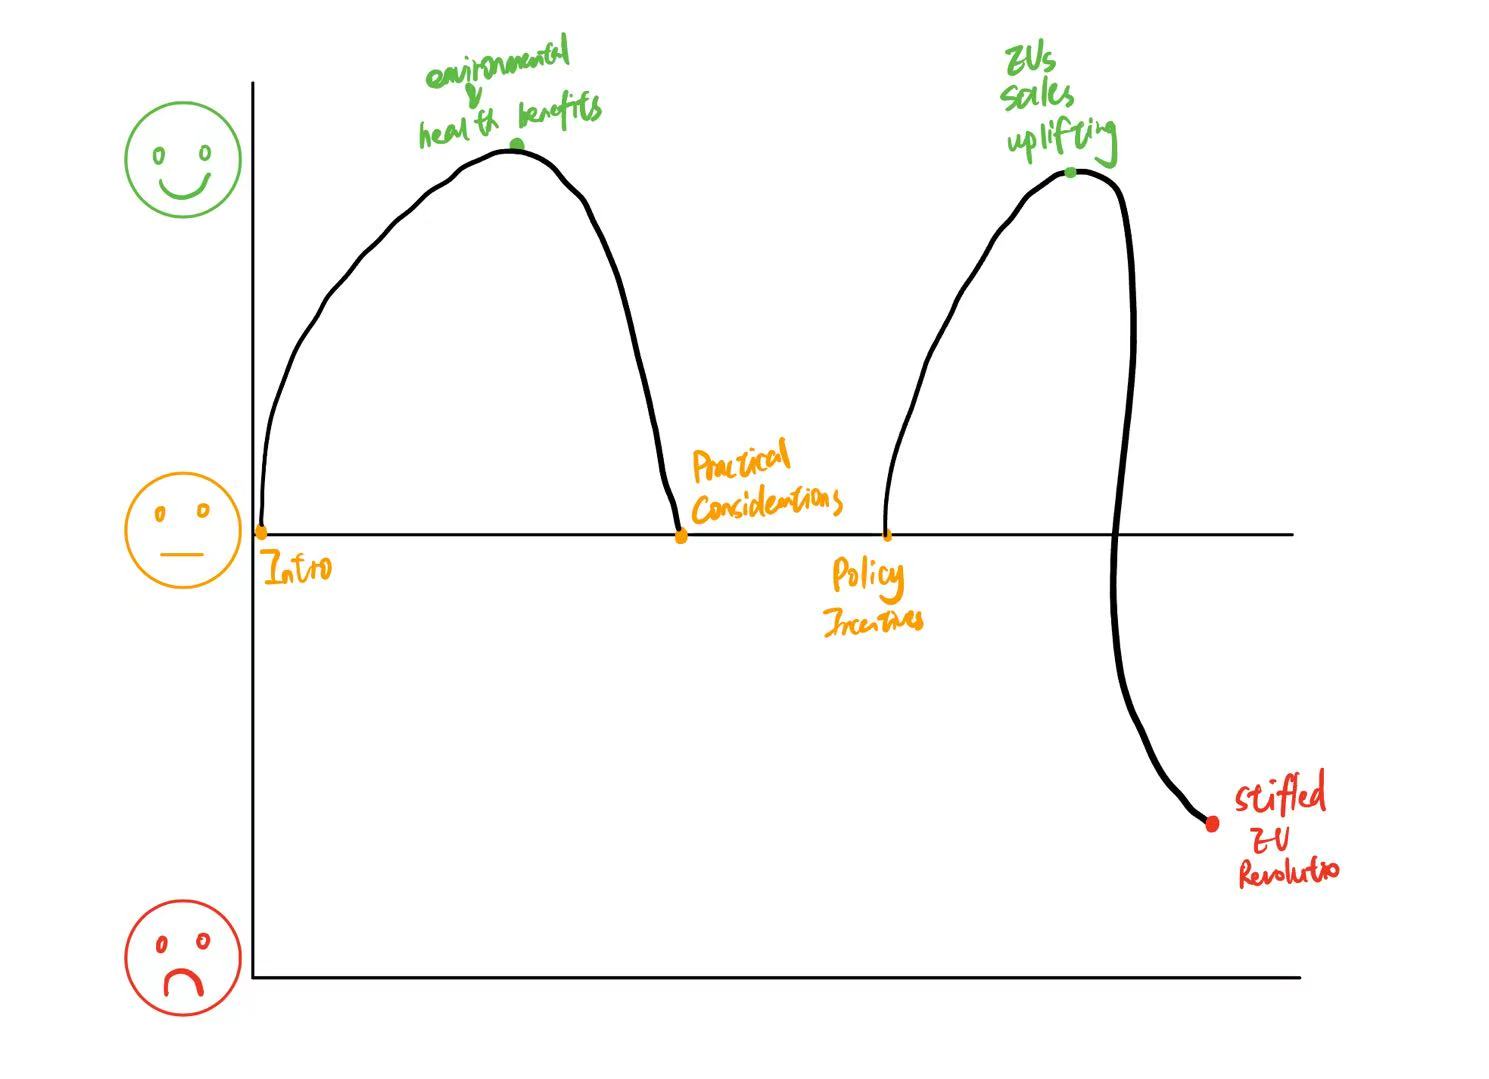 environmental
health benefits
ZUs
sales
uplifting
Practical
Considerations
Intro
Policy
Incentives
stifled
ZU
Revolutio